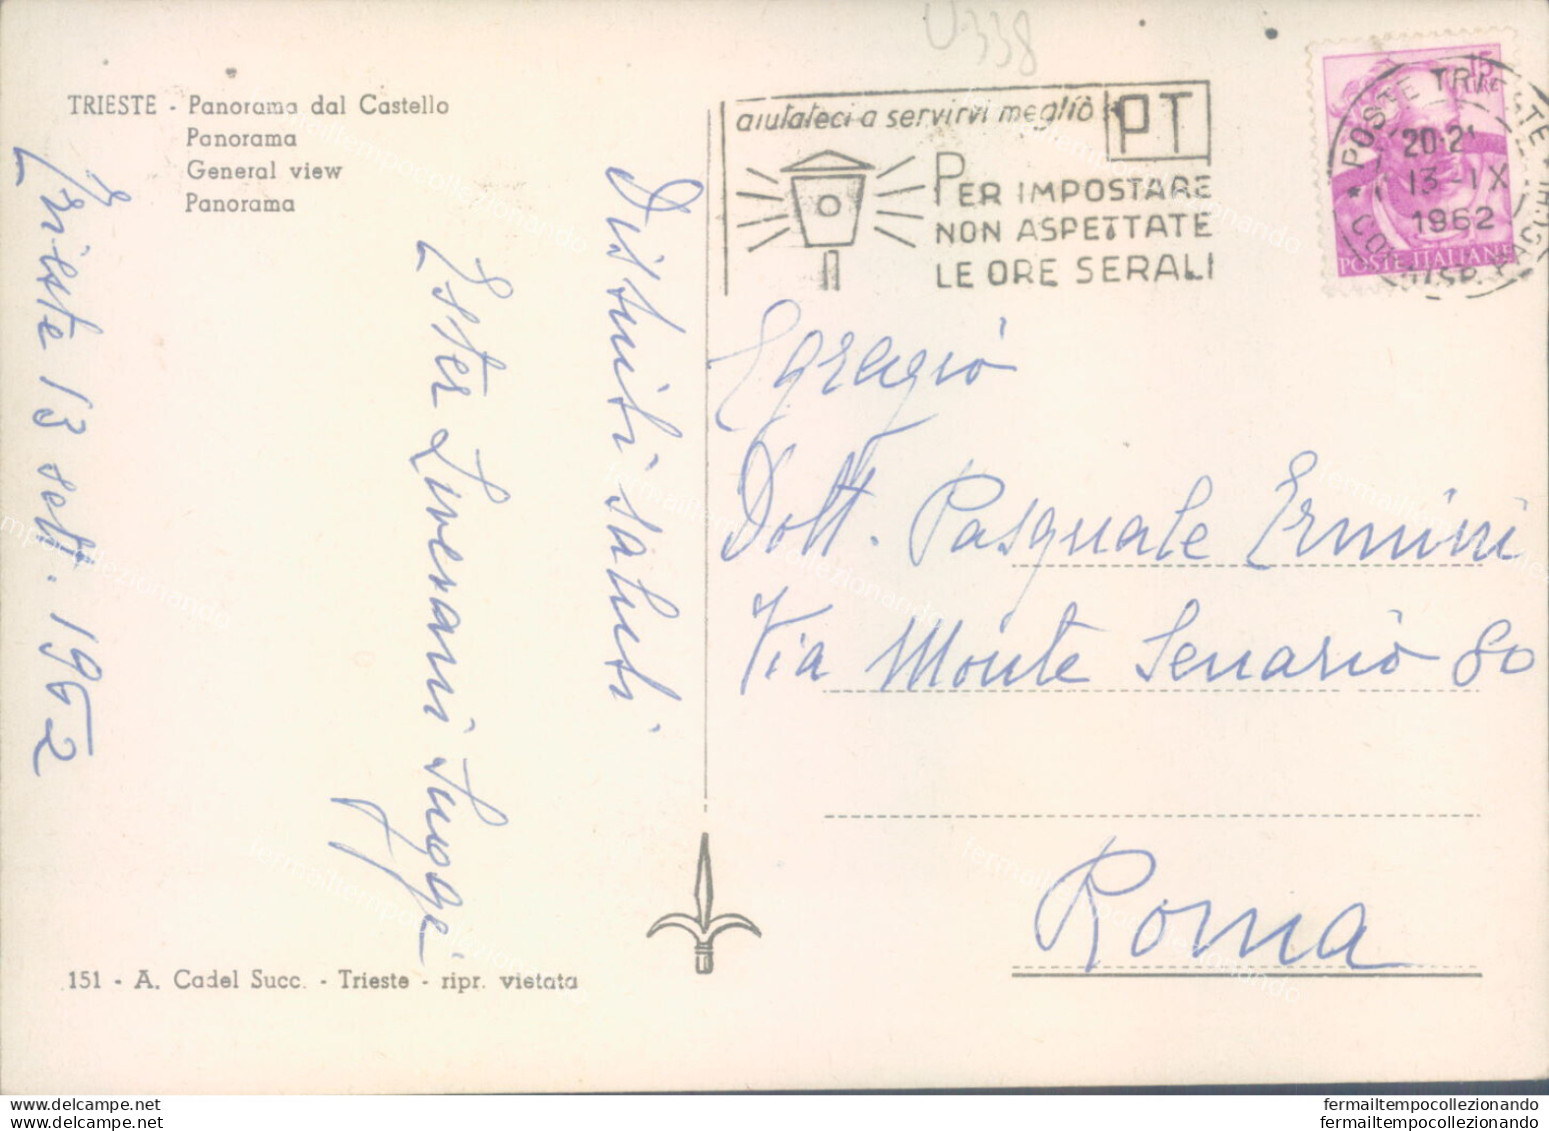 U338
TRIESTE - Panorama dal Castello
Panorama
General view
Panorama
aiutateci a servirvi meglio
PT
PER IMPOSTARE
NON ASPETTATE
LE ORE SERALI
15
LIRE
POSTE ITALIANE
POSTE TRIESTE
20-21
13 IX
1962
Trieste 13 sett. 1962
Distinti saluti
Ester Liverani
Egregio
Dott. Pasquale Ermini
Via Monte Senario 80
Roma
151 - A. Cadel Succ. - Trieste - ripr. vietata
www.delcampe.net
fermailtempocollezionando
www.delcampe.net
fermailtempocollezionando